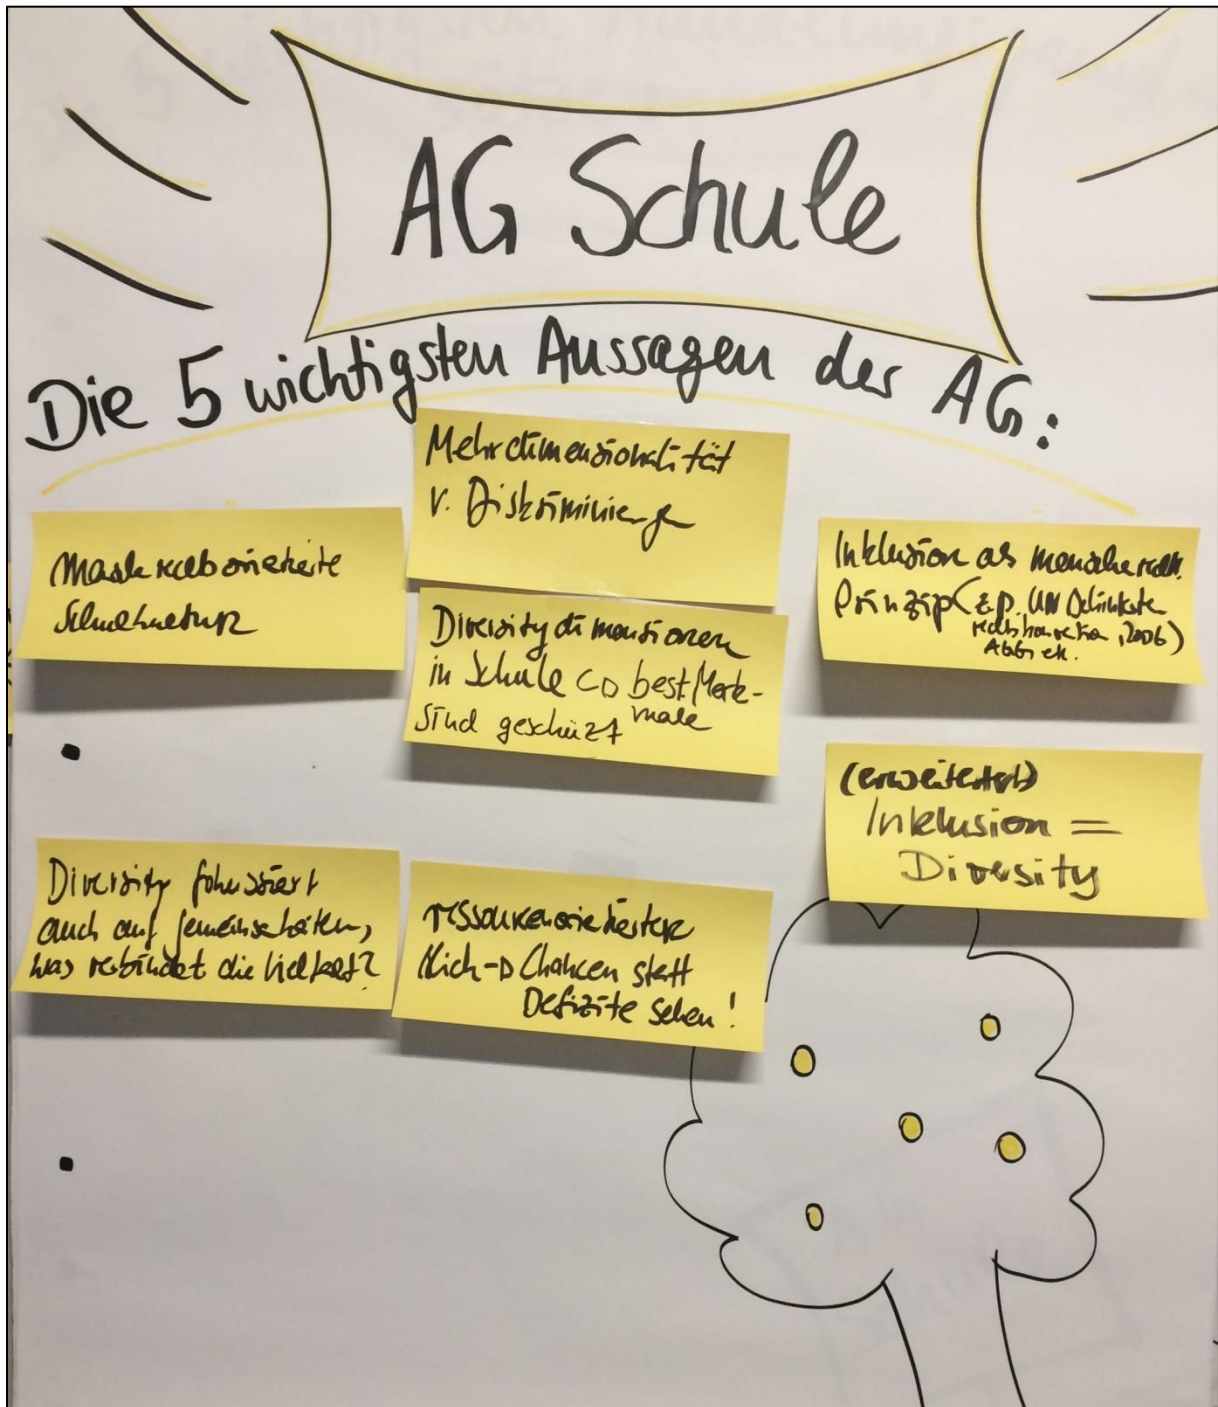 AG Schule
Die 5 wichtigsten Aussagen der AG:
Mehrdimensionalität
v. Diskriminierung
Schulkultur
Diversity dimensionen
in Schule best Merk-
male
sind geschützt
Inklusion als menschenrechtl.
Prinzip (z.B. UN Behinderten
rechtskonvention, 2006)
AGG etc.
(erweitert)
Inklusion =
Diversity
Diversity fokussiert
auch auf Gemeinschaften,
was verbindet die Vielfalt?
ressourcenorientierter
Blick → Chancen statt
Defizite sehen!